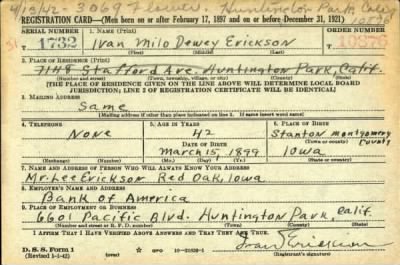 4/13/42 Huntington Park, Calif
REGISTRATION CARD—(Men born on or after February 17, 1897 and on or before December 31, 1921)
SERIAL NUMBER 1. NAME (Print) ORDER NUMBER
1732 Ivan Milo Dewey Erickson
(First) (Middle) (Last)
2. PLACE OF RESIDENCE (Print)
7148 Stafford Ave. Huntington Park, Calif.
(Number and street) (Town, township, village, or city) (County) (State)
[THE PLACE OF RESIDENCE GIVEN ON THE LINE ABOVE WILL DETERMINE LOCAL BOARD
JURISDICTION; LINE 2 OF REGISTRATION CERTIFICATE WILL BE IDENTICAL]
3. MAILING ADDRESS
Same
[Mailing address if other than place indicated on line 2. If same insert word same]
4. TELEPHONE 5. AGE IN YEARS 6. PLACE OF BIRTH
None 42 Stanton Montgomery County
DATE OF BIRTH (Town or county)
March 15, 1899 Iowa
(Exchange) (Number) (Mo.) (Day) (Yr.) (State or country)
7. NAME AND ADDRESS OF PERSON WHO WILL ALWAYS KNOW YOUR ADDRESS
Mr. Lee Erickson Red Oak, Iowa
8. EMPLOYER'S NAME AND ADDRESS
Bank of America
9. PLACE OF EMPLOYMENT OR BUSINESS
6601 Pacific Blvd. Huntington Park, Calif.
(Number and street or R. F. D. number) (Town) (County) (State)
I AFFIRM THAT I HAVE VERIFIED ABOVE ANSWERS AND THAT THEY ARE TRUE.
D. S. S. Form 1
(Revised 1-1-42) (over) Ivan Erickson
(Registrant's signature)